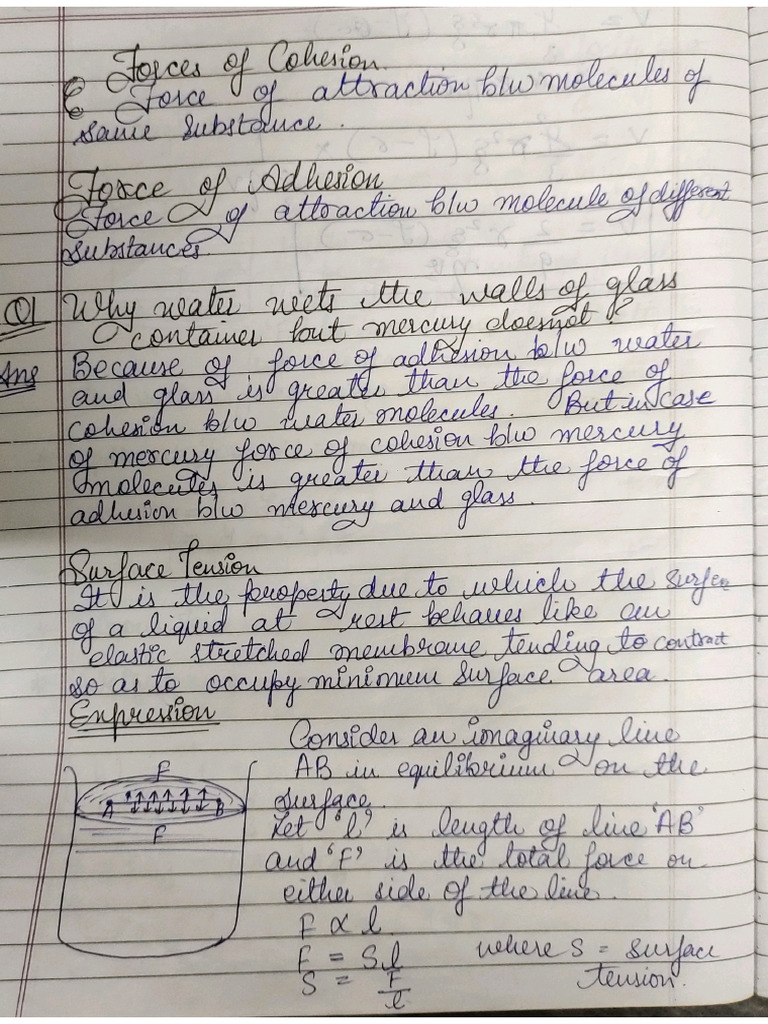 Forces of Cohesion
Force of attraction b/w molecules of
same substance.
Force of Adhesion
Force of attraction b/w molecule of different
substances.
Q1 Why water wets the walls of glass
container but mercury doesnot?
Ans Because of force of adhesion b/w water
and glass is greater than the force of
cohesion b/w water molecules. But in case
of mercury force of cohesion b/w mercury
molecules is greater than the force of
adhesion b/w mercury and glass.
Surface Tension
It is the property due to which the surface
of a liquid at rest behaves like an
elastic stretched membrane tending to contract
so as to occupy minimum surface area.
Expression
Consider an imaginary line
AB in equilibrium on the
surface.
Let 'l' is length of line 'AB'
and 'F' is the total force on
either side of the line.
F ∝ l
F = Sl where S = surface
S = F/l tension.
F
A B
F